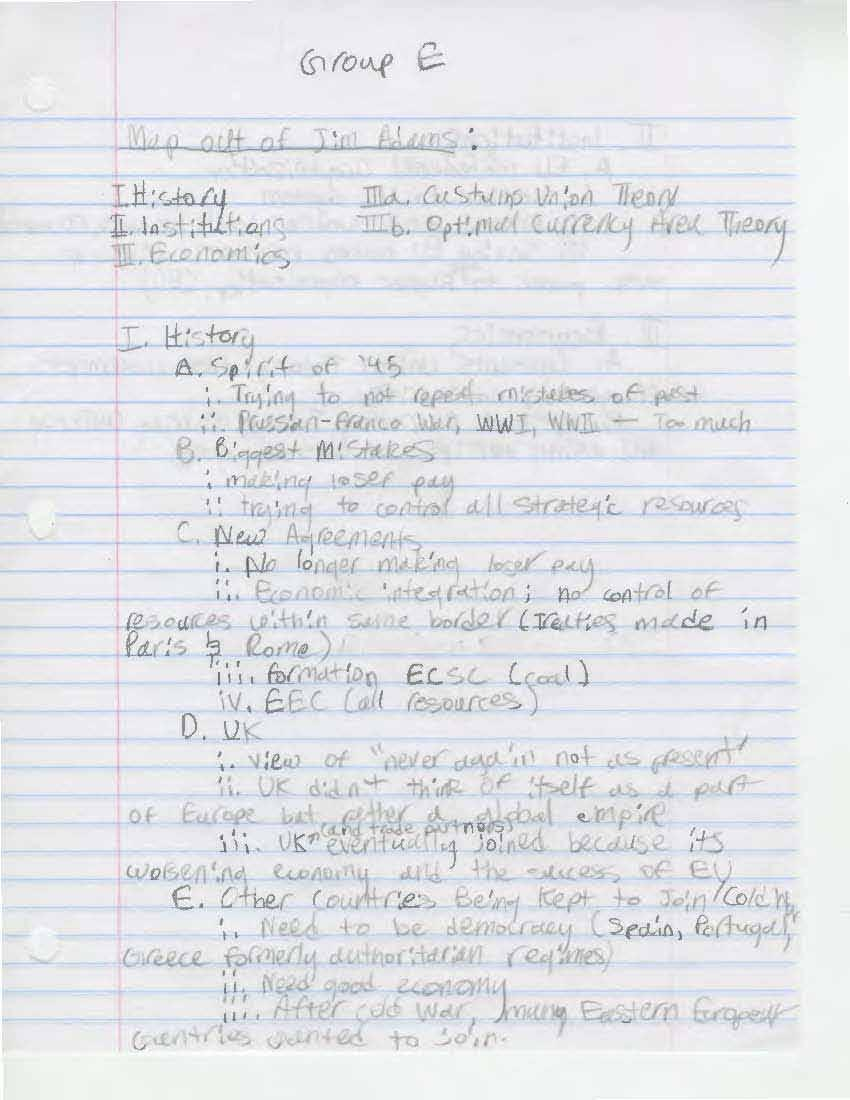 Group E
Map out of Jim Adams:
I. History IIIa. Custums Union Theory
II. Institutions IIIb. Optimal Currency Area Theory
III. Economics
I. History
A. Spirit of '45
i. Trying to not repeat mistakes of past
ii. Prussian-Franco War, WWI, WWII - Too much
B. Biggest Mistakes
i making loser pay
ii trying to control all strategic resources
C. New Agreements
i. No longer making loser pay
ii. Economic integration; no control of
resources within same border (Treaties made in
Paris & Rome)
iii. formation ECSC (coal)
iv. EEC (all resources)
D. UK
i. view of "never again not as present"
ii. UK didn't think of itself as a part
of Europe but rather a global empire
iii. UK ^(and trade partners) eventually joined because its
worsening economy and the success of EU
E. Other Countries Being Kept to Join/Cold W
i. Need to be democracy (Spain, Portugal,
Greece formerly authoritarian regimes)
ii. Need good economy
iii. After cold War, many Eastern European
Countries wanted to join.